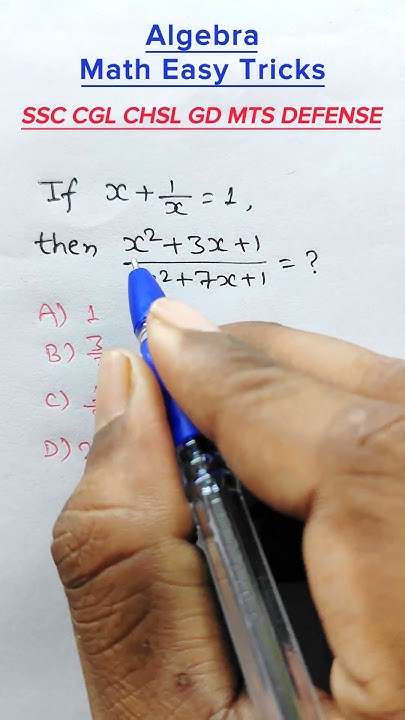 Algebra
Math Easy Tricks
SSC CGL CHSL GD MTS DEFENSE
If x + 1/x = 1,
then x² + 3x + 1
² + 7x + 1 = ?
A) 1
B) 3
C)
D)